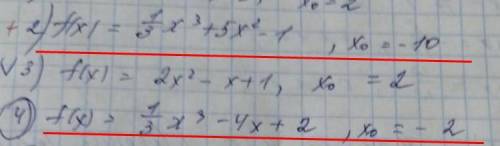 x₀ = 2
+ 2) f(x) = 1/3 x³ + 5x² - 1 , x₀ = -10
√3) f(x) = 2x² - x + 1, x₀ = 2
4) f(x) = 1/3 x³ - 4x + 2 , x₀ = - 2